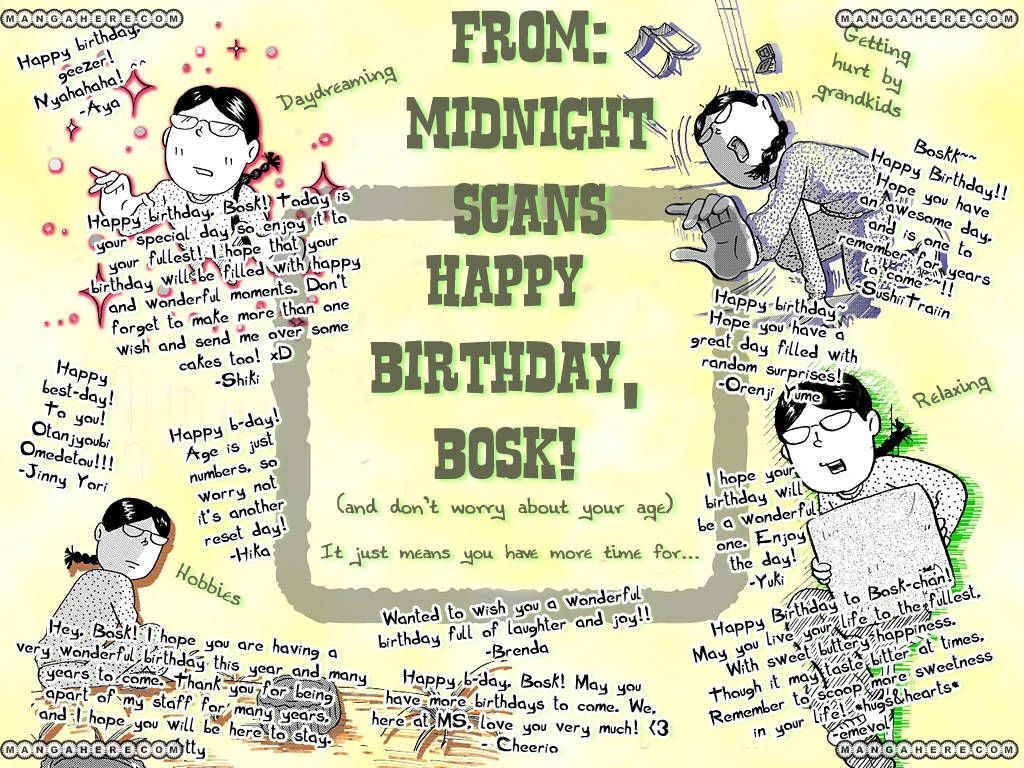 MANGAHERE.COM
MANGAHERE.COM
Happy birthday,
geezer! ^^
Nyahahaha!
-Aya
Daydreaming
FROM:
MIDNIGHT
SCANS
HAPPY
BIRTHDAY,
BOSK!
(and don't worry about your age)
It just means you have more time for...
Getting
hurt by
grandkids
Boskk~~
Happy Birthday!!
Hope you have
an awesome day,
and is one to
remember for years
to come~~!!
-SushiiTraiin
Happy birthday, Bosk! Today is
your special day so enjoy it to
your fullest! I hope that your
birthday will be filled with happy
and wonderful moments. Don't
forget to make more than one
wish and send me over some
cakes too! xD
-Shiki
Happy birthday~
Hope you have a
great day filled with
random surprises!
-Orenji Yume
Happy
best-day!
To you!
Otanjyoubi
Omedetou!!!
-Jinny Yori
Happy b-day!
Age is just
numbers, so
worry not
it's another
reset day!
-Hika
Relaxing
I hope your
birthday will
be a wonderful
one. Enjoy
the day!
-Yuki
Hobbies
Hey, Bosk! I hope you are having a
very wonderful birthday this year and many
years to come. Thank you for being
apart of my staff for many years,
and I hope you will be here to stay.
Wanted to wish you a wonderful
birthday full of laughter and joy!!
-Brenda
Happy b-day, Bosk! May you
have more birthdays to come. We,
here at MS, love you very much! <3
- Cheerio
Happy Birthday to Bosk-chan!
May you live your life to the fullest,
With sweet buttery happiness.
Though it may taste bitter at times,
Remember to scoop more sweetness
in your life! *hugs&hearts*
-emeval
MANGAHERE.COM
MANGAHERE.COM